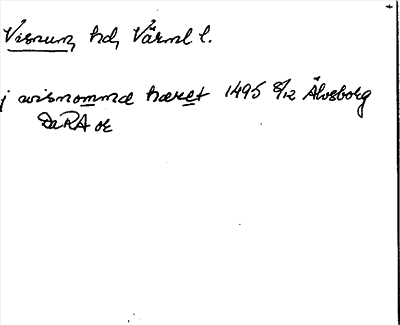 Visnum, hd, Värml l.
j wisnomma hæret 1495 8/12 Älvsborg
DaRA or